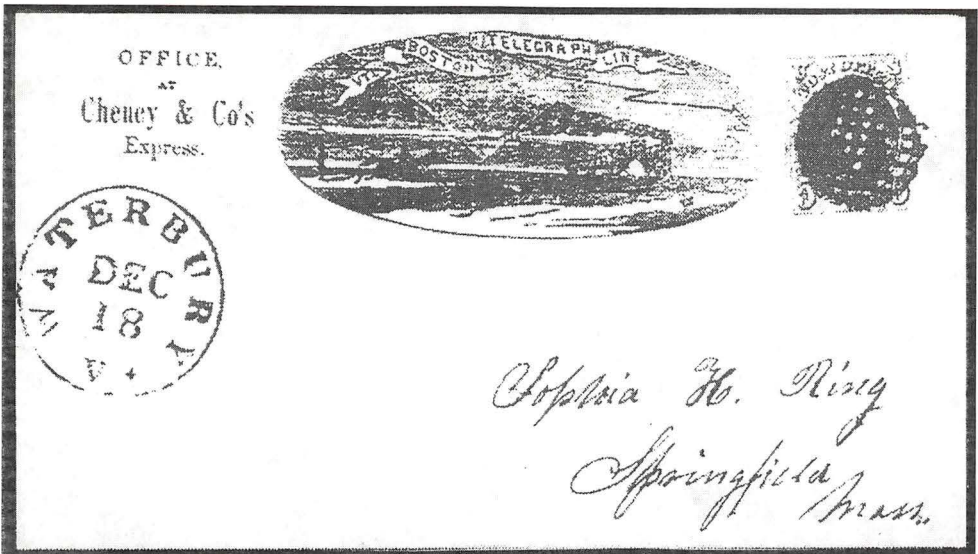 OFFICE,
AT
Cheney & Co's
Express.
VT. BOSTON TELEGRAPH LINE
WATERBURY
DEC
18
Vt
Sophia H. Ring
Springfield
Mass.